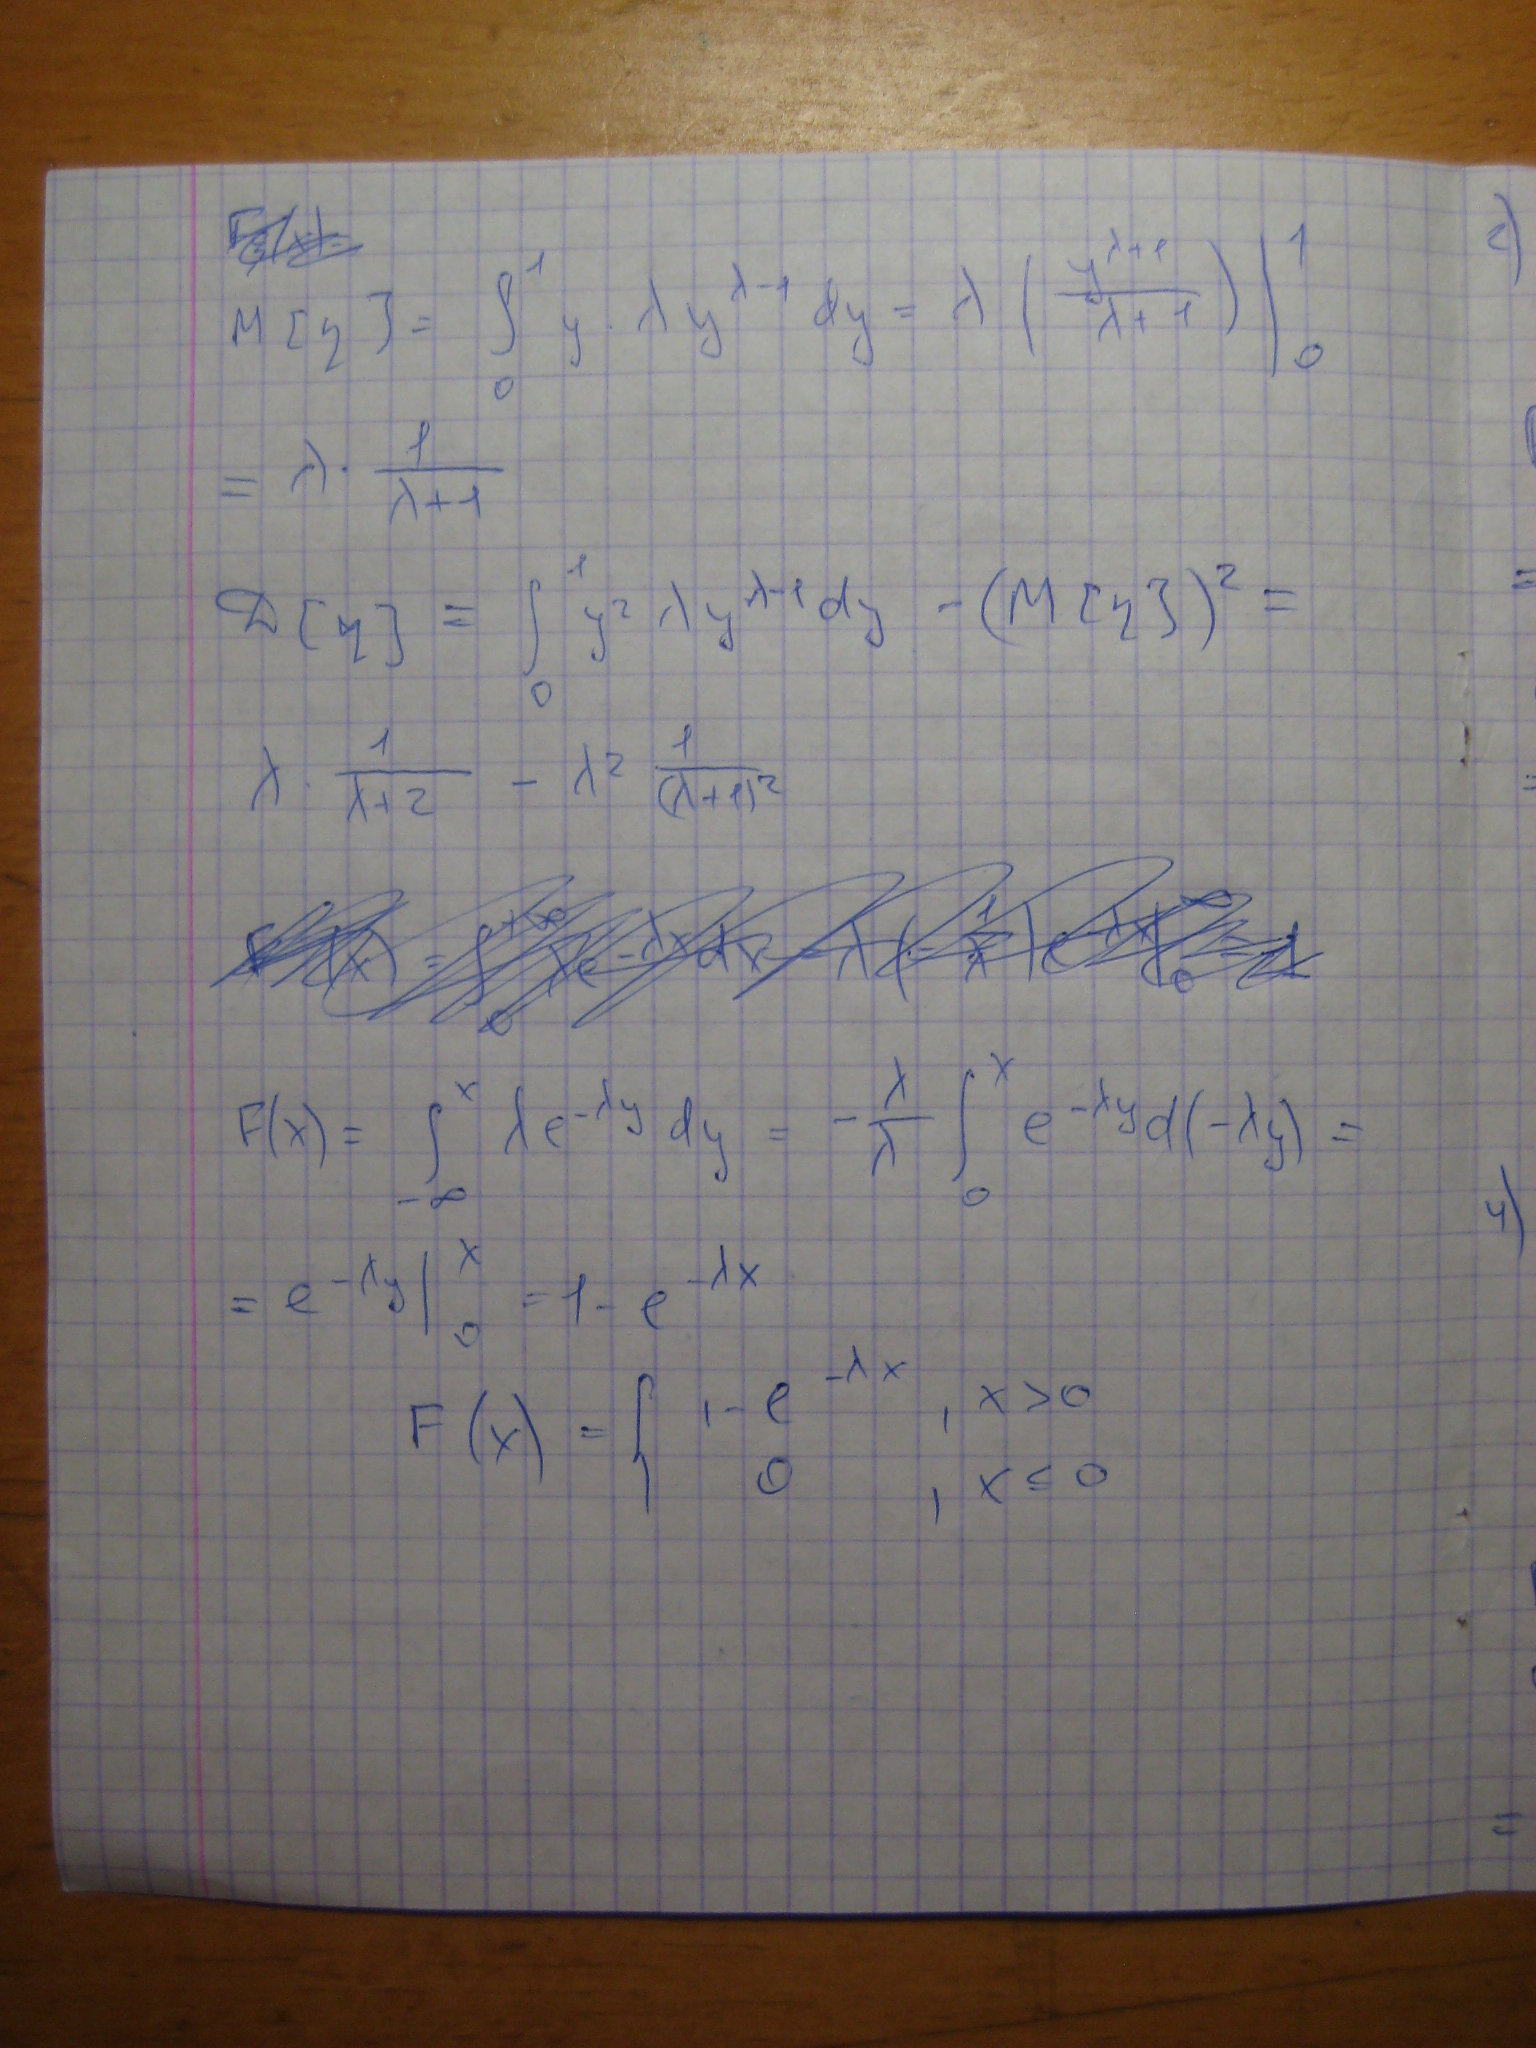 M[η] = ∫₀¹ y · λ y^{λ-1} dy = λ ( y^{λ+1} / λ+1 ) |₀¹
= λ · 1 / λ+1
D[η] = ∫₀¹ y² λ y^{λ-1} dy - (M[η])² =
λ · 1 / λ+2 - λ² 1 / (λ+1)²
F(x) = ∫_{-∞}^{x} λ e^{-λy} dy = - λ/λ ∫₀ˣ e^{-λy} d(-λy) =
= e^{-λy} |₀ˣ = 1 - e^{-λx}
F(x) = { 1 - e^{-λx} , x > 0
0 , x ≤ 0
2)
=
=
4)
=